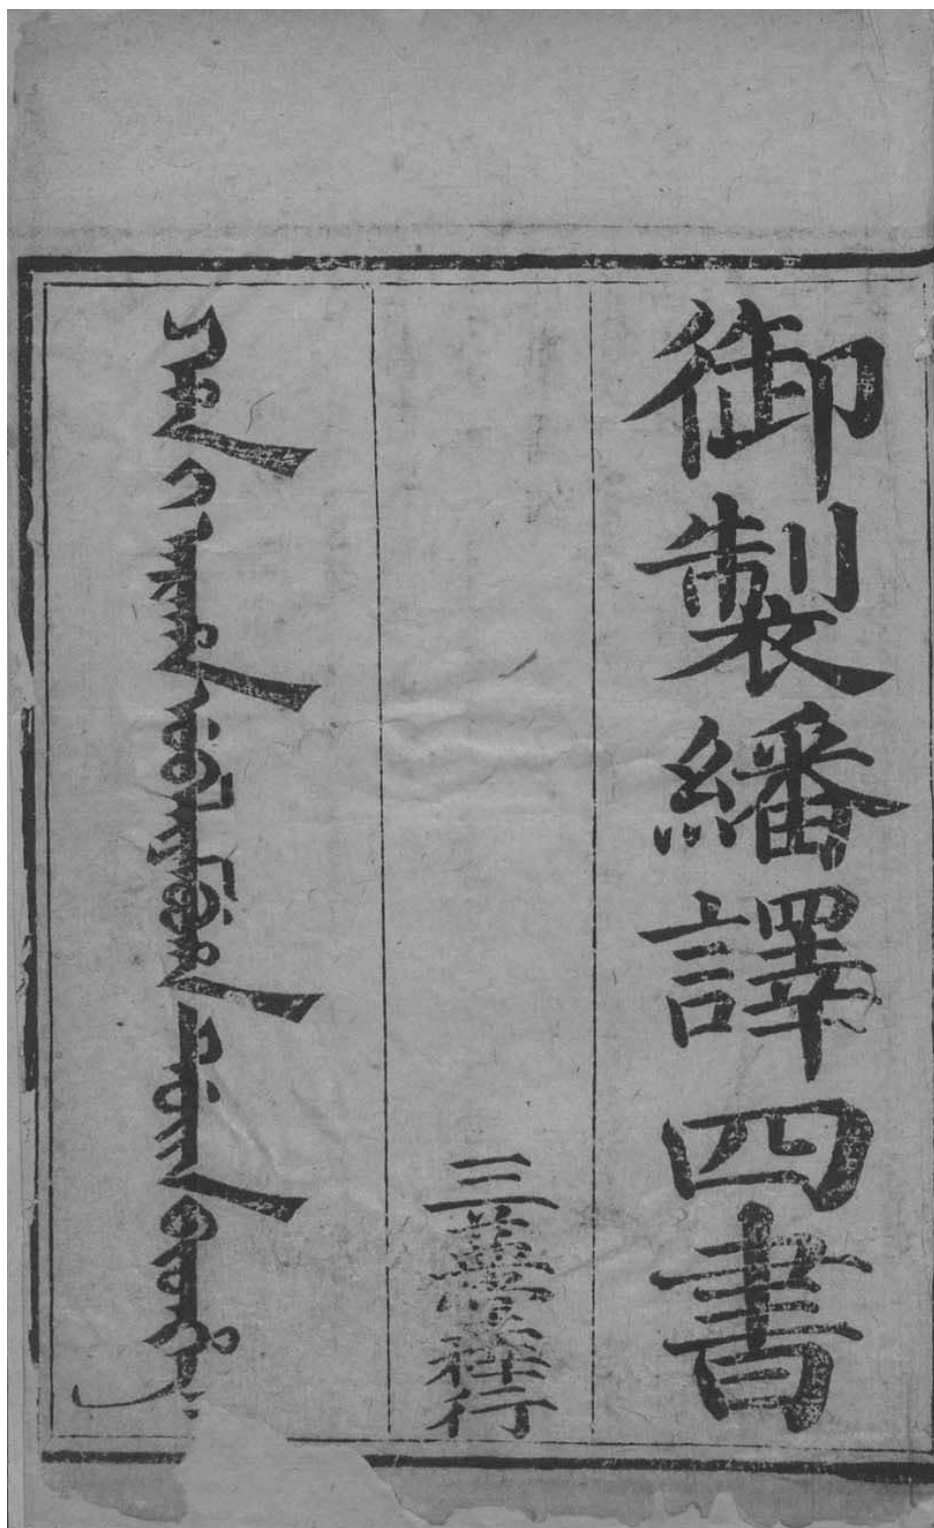 御製繙譯四書
三 梓行
ᡥᠠᠨ ᡳ ᠠᡵᠠᡥᠠ ᡠᠪᠠᠯᡳᠶᠠᠮᠪᡠᡥᠠ ᡩᡠᡳᠨ ᠪᡳᡨᡥᡝ